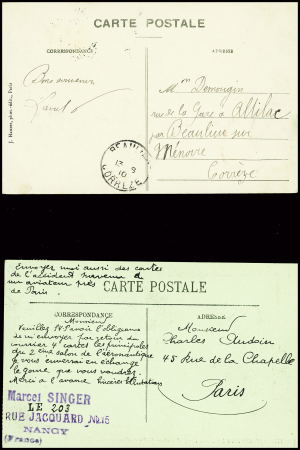 CARTE POSTALE
CORRESPONDANCE
ADRESSE
Bon souvenir
J. Hauser, phot.-édit., Paris
Mme Demongin
rue de la Gare à Altillac
par Beaulieu sur
Ménoire
Corrèze
BEAULIEU
13 9
10
CORREZE
Envoyez moi aussi des cartes
de l'accident survenu à
un aviateur près
de Paris
CARTE POSTALE
CORRESPONDANCE
ADRESSE
Monsieur
Veuillez avoir l'obligeance
de m'envoyer par retour du
courrier 4 cartes les principales
du 2ème salon de l'aéronautique
je vous enverrai en échange
le genre que vous voudrez.
Merci à l'avance Sincères Salutations
Monsieur
Charles Audoin
45 Rue de la Chapelle
Paris
Marcel SINGER
LE 203
RUE JACQUARD No 15
NANCY
(France)